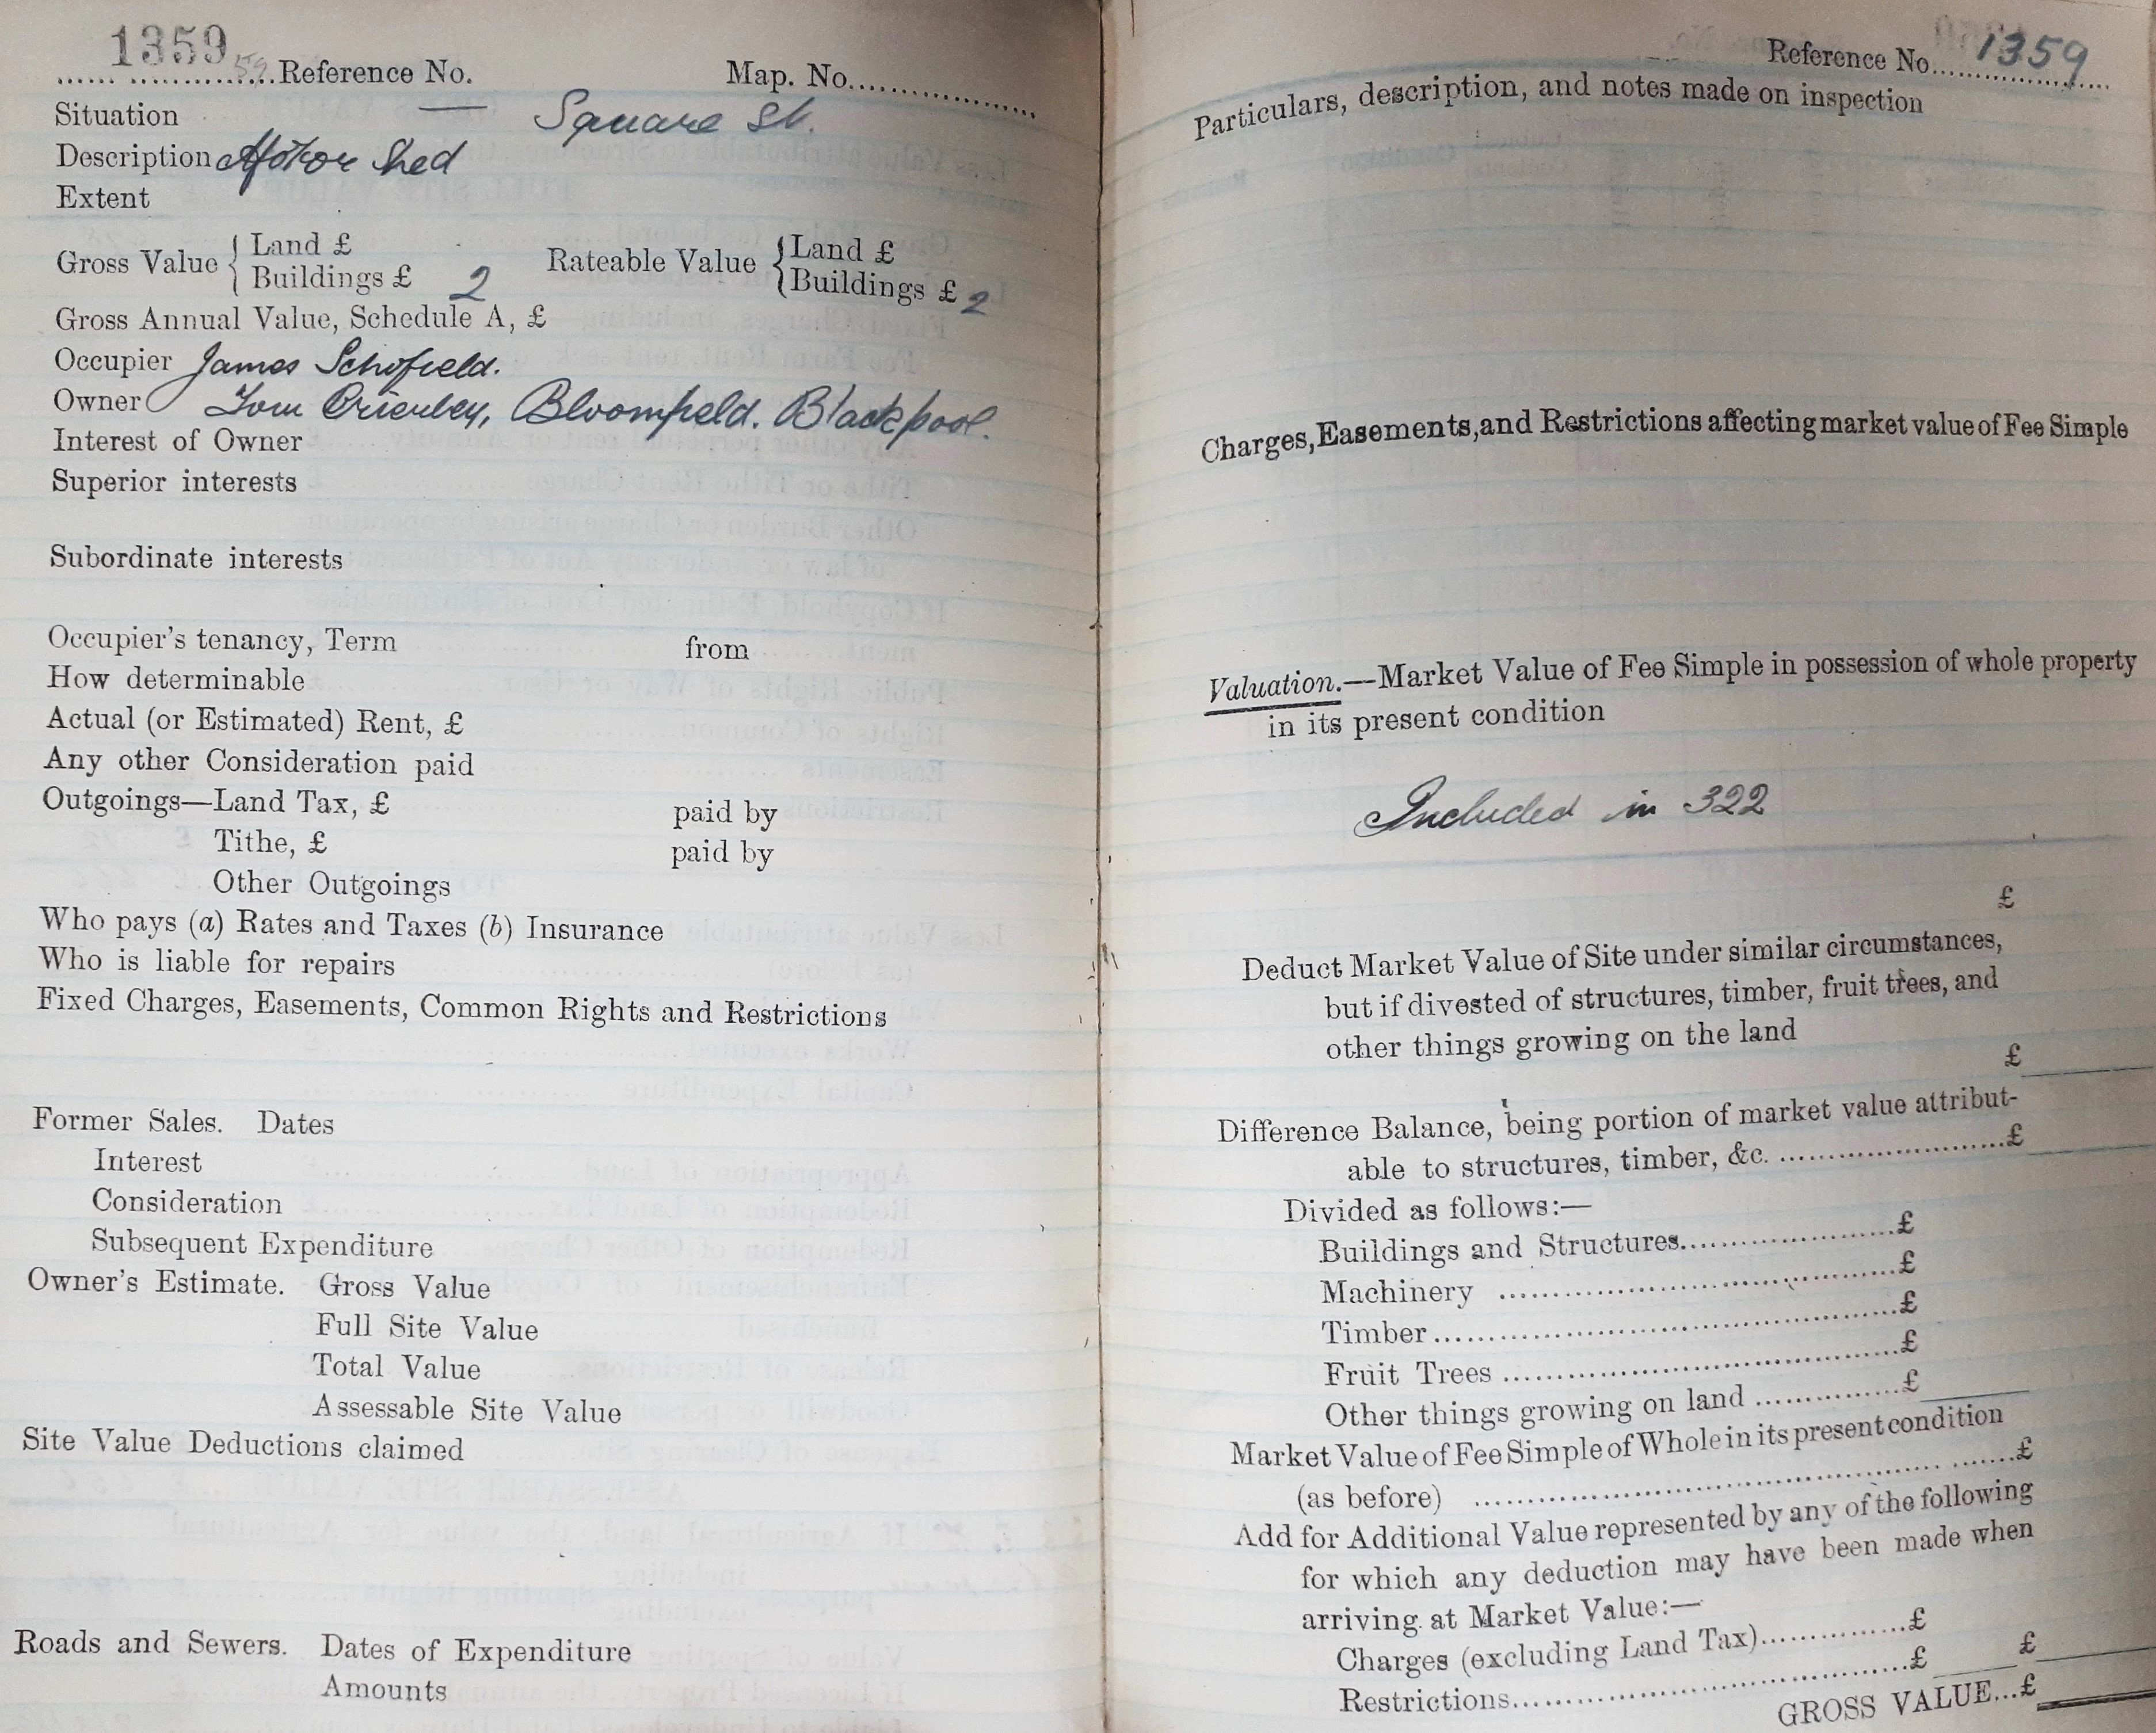 1359
Reference No. Map. No.
Situation — Square St.
Description Motor Shed
Extent
Gross Value { Land £
Buildings £ 2
Rateable Value { Land £
Buildings £ 2
Gross Annual Value, Schedule A, £
Occupier James Schofield.
Owner Tom Brierley, Bloomfield. Blackpool.
Interest of Owner
Superior interests
Subordinate interests
Occupier's tenancy, Term from
How determinable
Actual (or Estimated) Rent, £
Any other Consideration paid
Outgoings—Land Tax, £ paid by
Tithe, £ paid by
Other Outgoings
Who pays (a) Rates and Taxes (b) Insurance
Who is liable for repairs
Fixed Charges, Easements, Common Rights and Restrictions
Former Sales. Dates
Interest
Consideration
Subsequent Expenditure
Owner's Estimate. Gross Value
Full Site Value
Total Value
Assessable Site Value
Site Value Deductions claimed
Roads and Sewers. Dates of Expenditure
Amounts
Reference No. 1359
Particulars, description, and notes made on inspection
Charges, Easements, and Restrictions affecting market value of Fee Simple
Valuation.—Market Value of Fee Simple in possession of whole property
in its present condition
Included in 322
£
Deduct Market Value of Site under similar circumstances,
but if divested of structures, timber, fruit trees, and
other things growing on the land
£
Difference Balance, being portion of market value attribut-
able to structures, timber, &c. £
Divided as follows:—
Buildings and Structures £
Machinery £
Timber £
Fruit Trees £
Other things growing on land £
Market Value of Fee Simple of Whole in its present condition
(as before) £
Add for Additional Value represented by any of the following
for which any deduction may have been made when
arriving at Market Value:—
Charges (excluding Land Tax) £
Restrictions £ £
GROSS VALUE...£